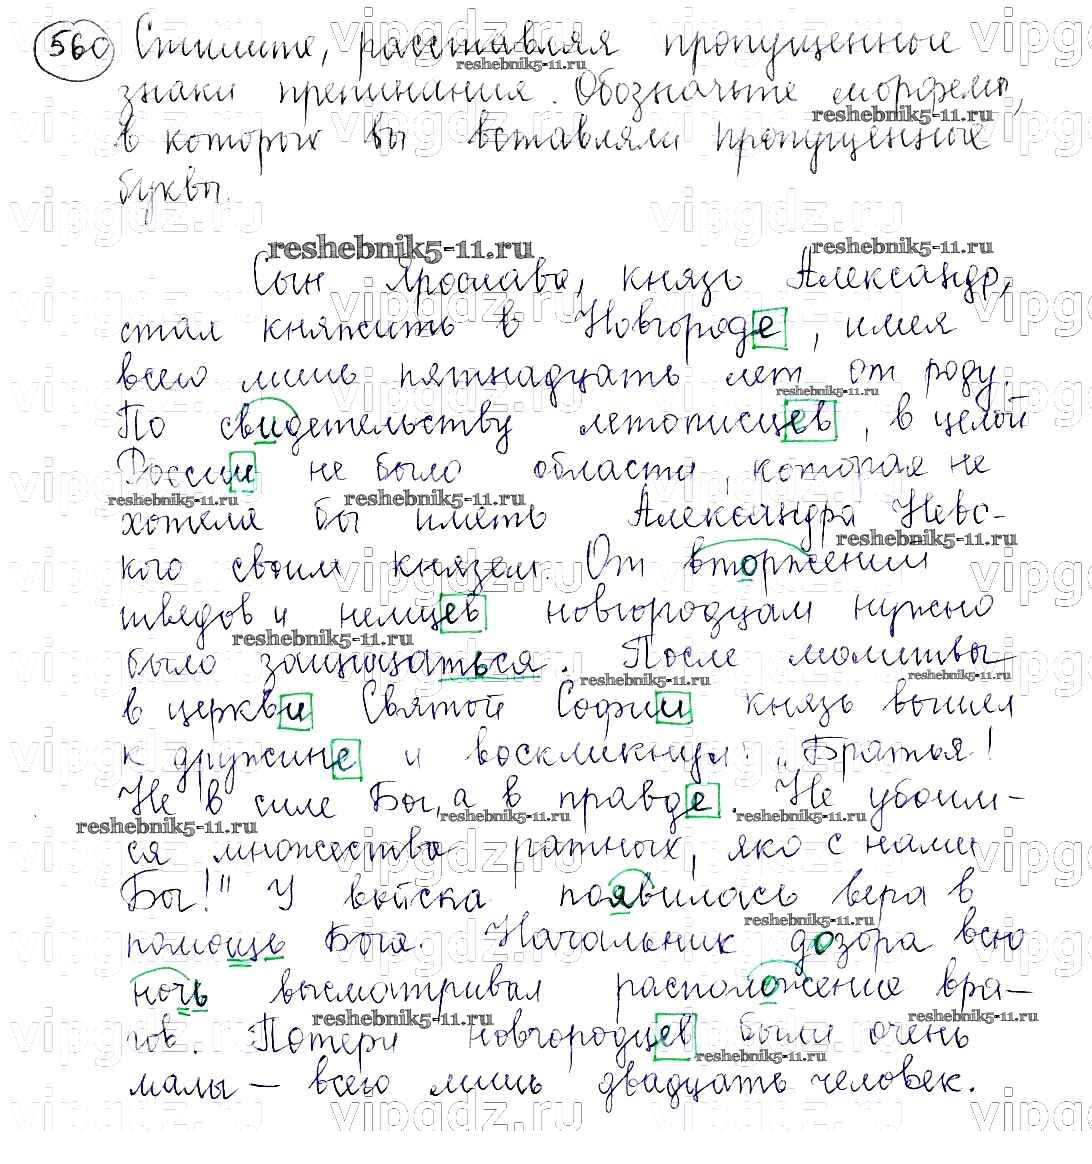 560 Спишите, расставляя пропущенные
знаки препинания. Обозначьте морфемы,
в которых вы вставляли пропущенные
буквы.
reshebnik5-11.ru
Сын Ярослава, князь Александр,
стал княжить в Новгороде, имея
всего лишь пятнадцать лет от роду.
По свидетельству летописцев, в целой
России не было области, которая не
хотела бы иметь Александра Невс-
кого своим князем. От вторжений
шведов и немцев новгородцам нужно
было защищаться. После молитвы
в церкви Святой Софии князь вышел
к дружине и воскликнул: „Братья!
Не в силе Бог, а в правде. Не убоим-
ся множества ратных, яко с нами
Бог!" У войска появилась вера в
помощь Бога. Начальник дозора всю
ночь высматривал расположение вра-
гов. Потери новгородцев были очень
малы — всего лишь двадцать человек.
vipgdz.ru